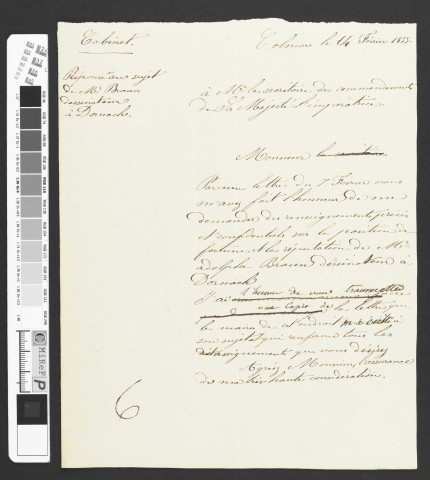 Cabinet.
Colmar le 14 Février 1855.
Réponse au sujet
de Mr. Braun
dessinateur
à Dornach.
à Mr. le secrétaire des commandements
de Sa Majesté l'impératrice.
Monsieur le secrétaire
Par une lettre du 7 Février vous
m'avez fait l'honneur de me
demander des renseignements précis
et confidentiels sur la position de
fortune et la réputation de Mr.
Adolphe Braun dessinateur à
Dornach.
J'ai l'honneur de vous transmettre
une copie de la lettre que
le maire de cet endroit m'a écrite à
son sujet et qui renferme tous les
renseignements que vous désirez
Agréez, Monsieur, l'assurance
de ma très haute considération.
6
MiReFP